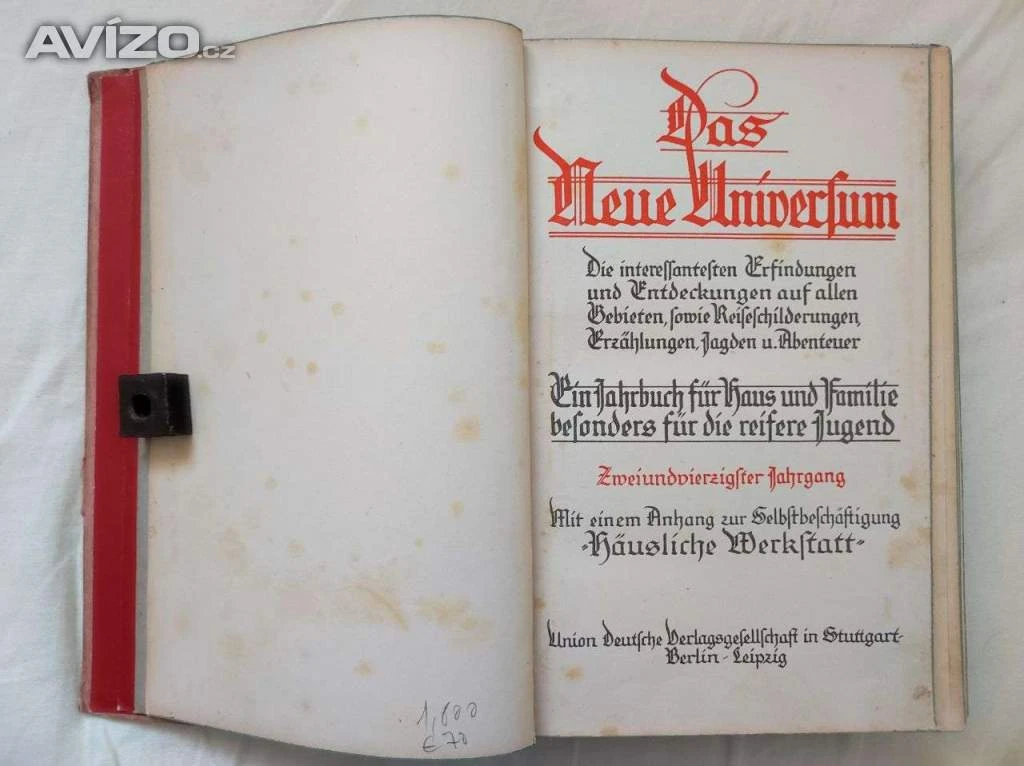 AVÍZO.cz
1,800
€ 70
Das
Neue Universum
Die interessantesten Erfindungen
und Entdeckungen auf allen
Gebieten, sowie Reiseschilderungen,
Erzählungen, Jagden u. Abenteuer
Ein Jahrbuch für Haus und Familie
besonders für die reifere Jugend
Zweiundvierzigster Jahrgang
Mit einem Anhang zur Selbstbeschäftigung
-Häusliche Werkstatt-
Union Deutsche Verlagsgesellschaft in Stuttgart-
Berlin-Leipzig